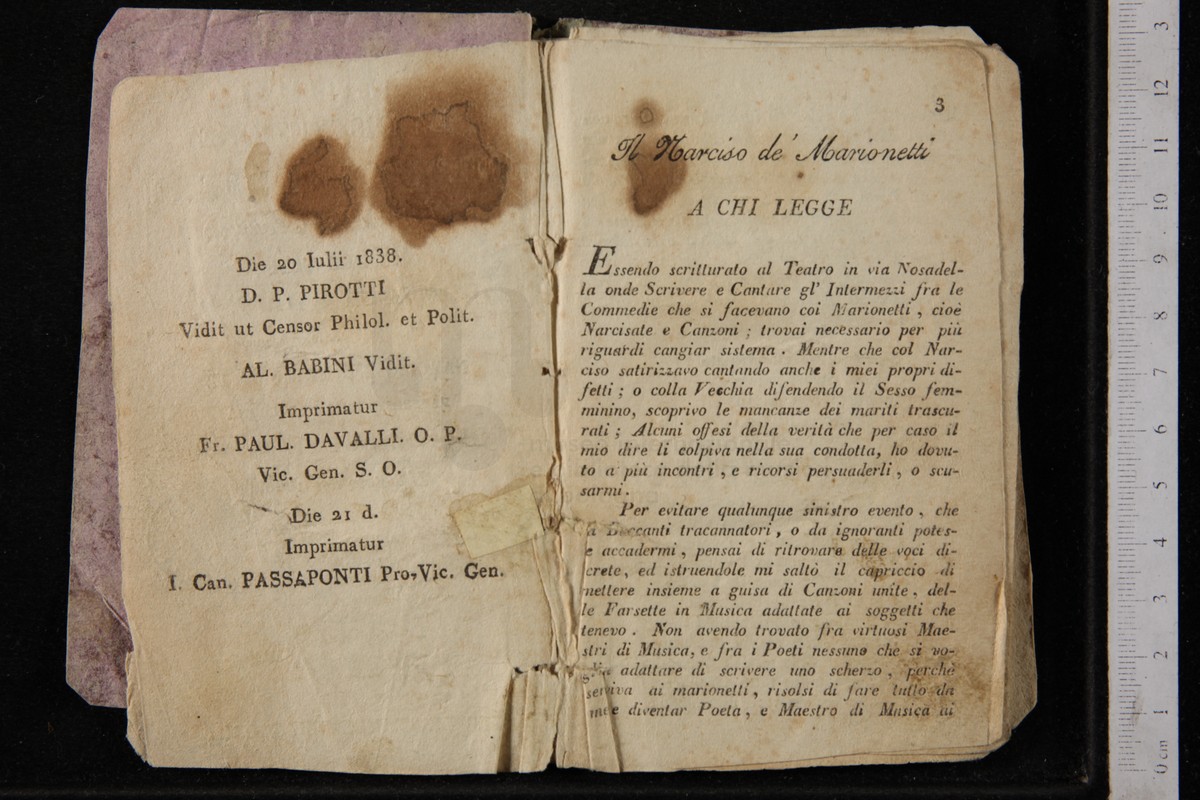 Die 20 Iulii 1838.
D. P. PIROTTI
Vidit ut Censor Philol. et Polit.
AL. BABINI Vidit.
Imprimatur
Fr. PAUL. DAVALLI. O. P.
Vic. Gen. S. O.
Die 21 d.
Imprimatur
I. Can. PASSAPONTI Pro-Vic. Gen.
3
Il Narciso de' Marionetti
A CHI LEGGE
Essendo scritturato al Teatro in via Nosadel-
la onde Scrivere e Cantare gl' Intermezzi fra le
Commedie che si facevano coi Marionetti , cioè
Narcisate e Canzoni ; trovai necessario per più
riguardi cangiar sistema . Mentre che col Nar-
ciso satirizzavo cantando anche i miei propri di-
fetti ; o colla Vecchia difendendo il Sesso fem-
minino, scoprivo le mancanze dei mariti trascu-
rati ; Alcuni offesi della verità che per caso il
mio dire li colpiva nella sua condotta, ho dovu-
to a più incontri , e ricorsi persuaderli , o scu-
sarmi .
Per evitare qualunque sinistro evento , che
tracannatori , o da ignoranti potes-
e accadermi , pensai di ritrovare delle voci di-
crete, ed istruendole mi saltò il capriccio di
mettere insieme a guisa di Canzoni unite , del-
le Farsette in Musica adattate ai soggetti che
tenevo . Non avendo trovato fra virtuosi Mae-
stri di Musica, e fra i Poeti nessuno che si vo-
adattare di scrivere uno scherzo , perchè
serviva ai marionetti , risolsi di fare tutto da
me e diventar Poeta , e Maestro di Musica ai
0 cm 1 2 3 4 5 6 7 8 9 10 11 12 3